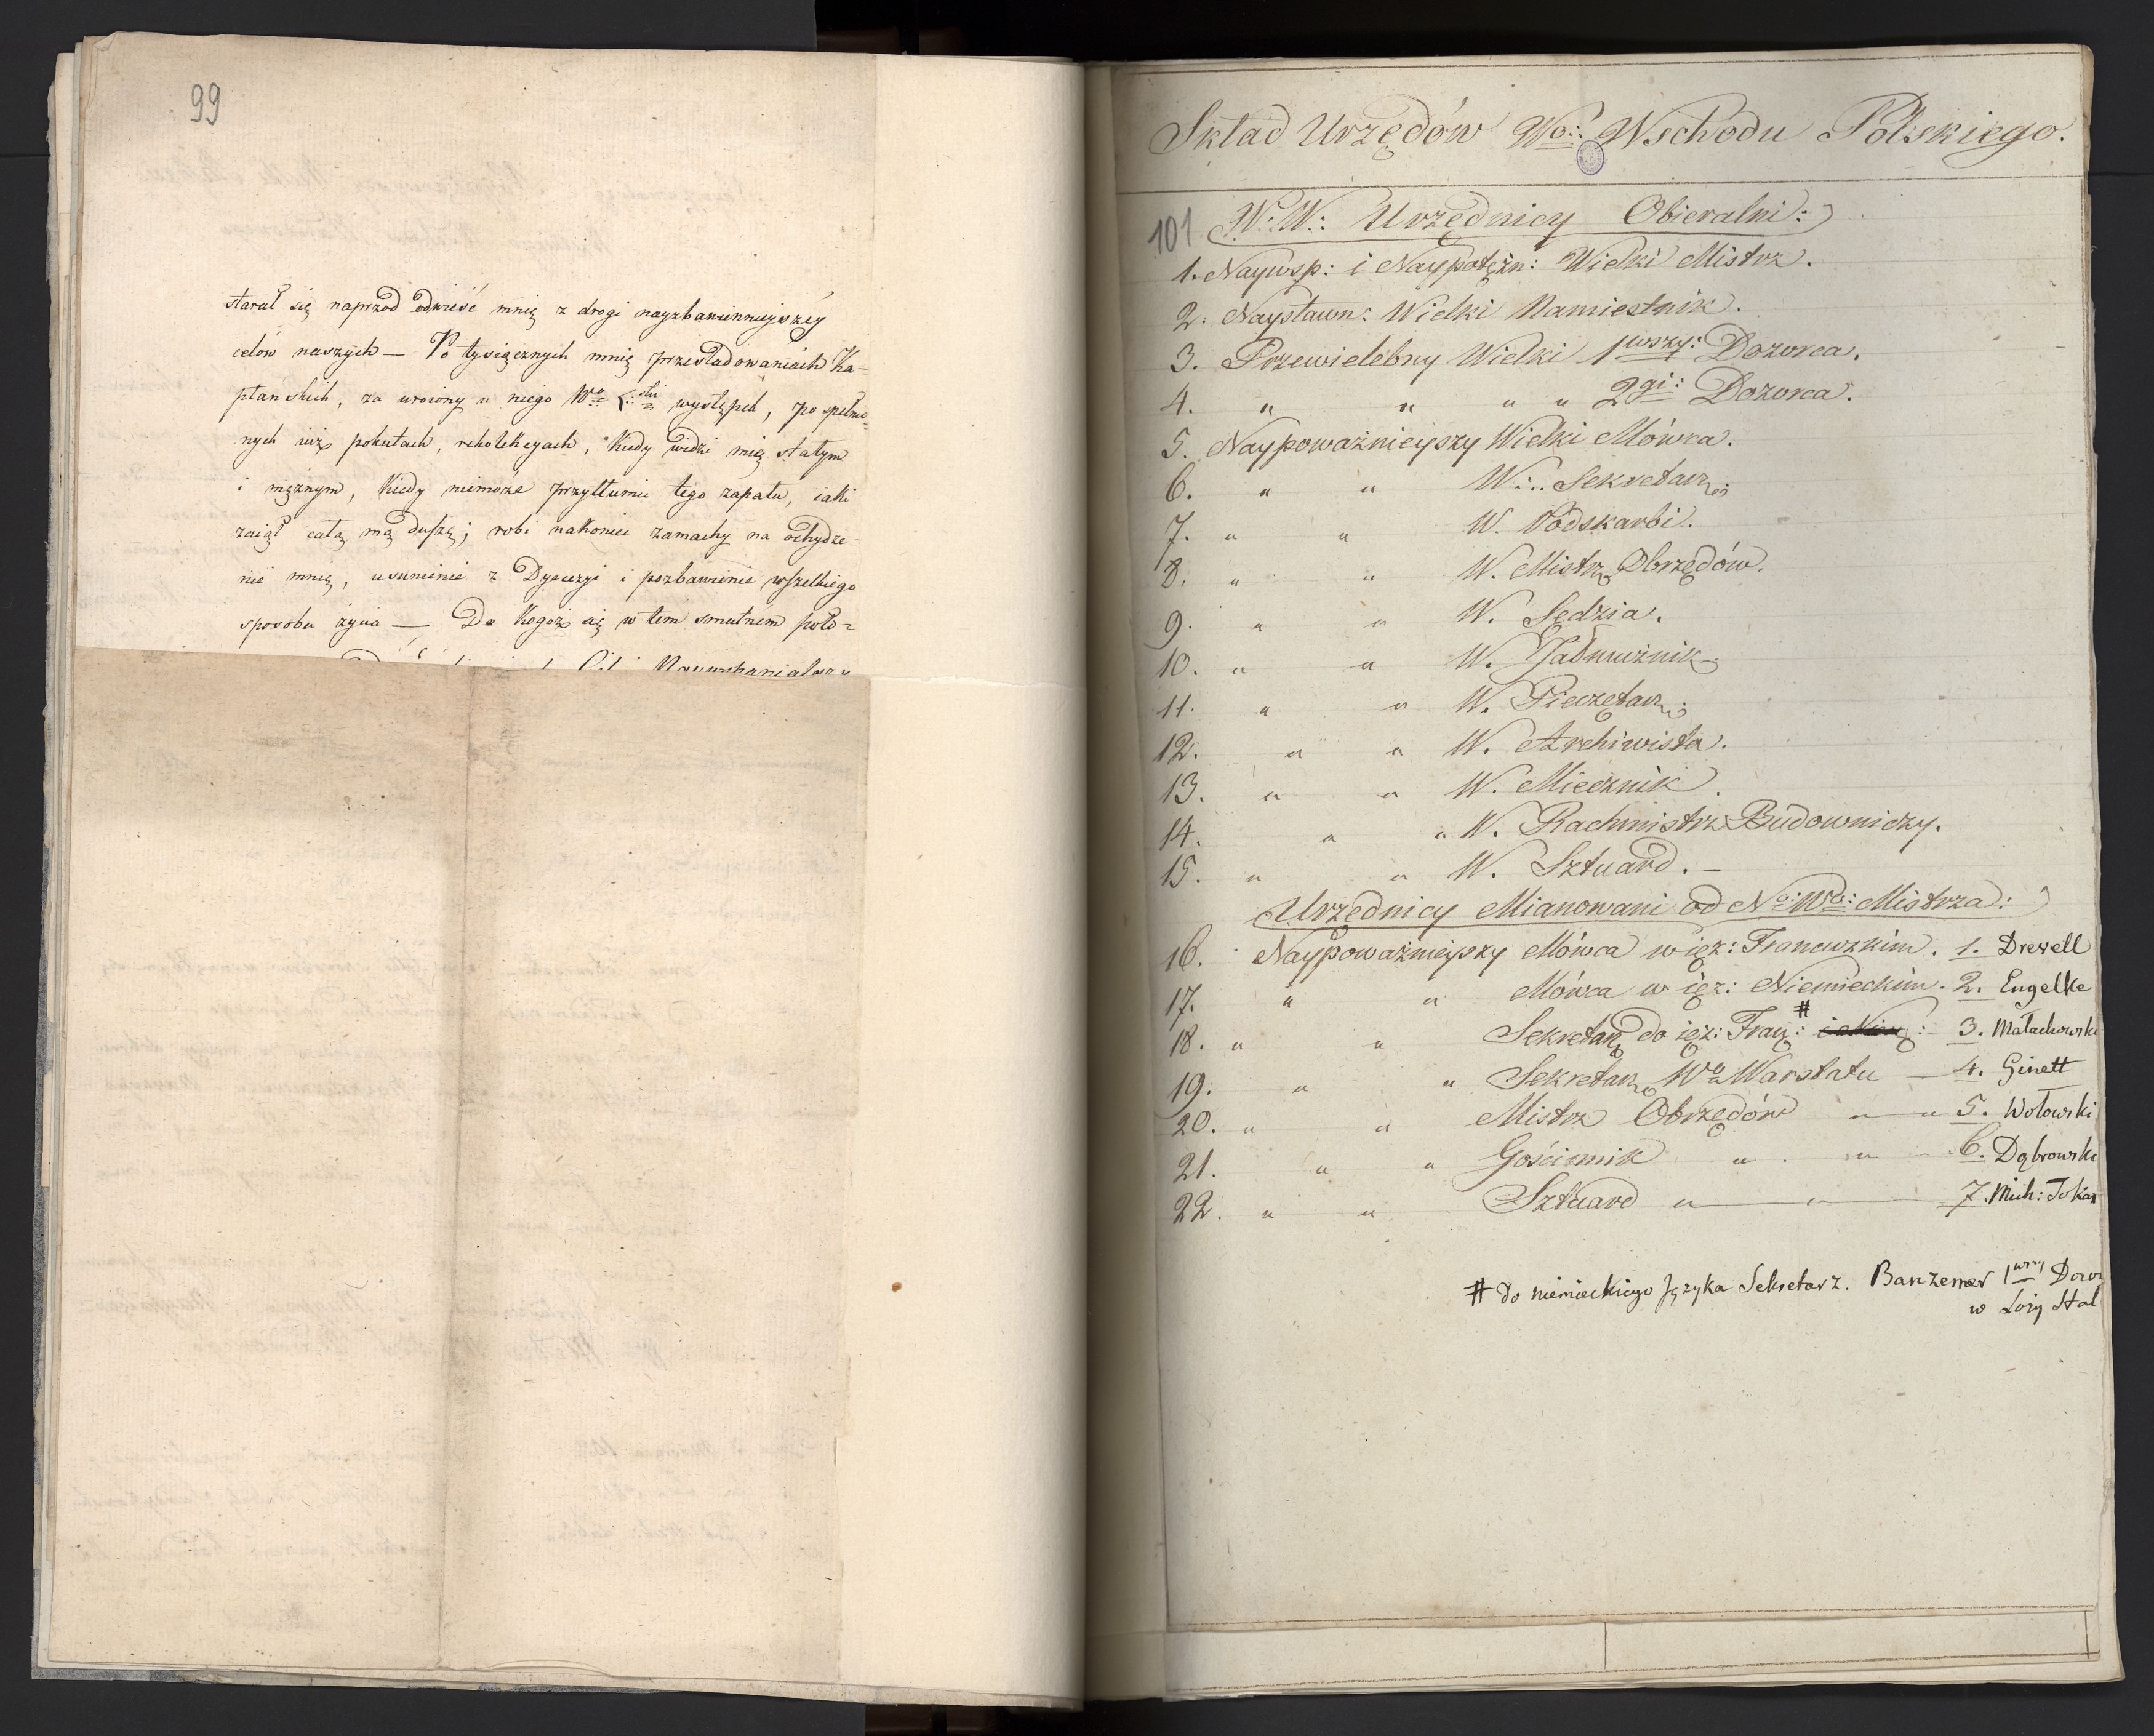 99
starał się naprzod odwieść mnię z drogi nayzbawiennieyszey
celów naszych — Po tysiącznych mnię prześladowaniach Ka-
płańskich, za urojony u niego występek, po spełnio-
nych iuż pokutach, rekolekcyach, kiedy widzi mię stałym
i mężnym, kiedy niemoże przytłumić tego zapału, iaki
zaiął całą mą duszę; robi nakoniec zamachy na ochydze-
nie mnię, usunienie z Dyecezyi i pozbawienie wszelkiego
sposobu życia — Do kogoż się w tem smutnem poło-
Skład Urzędów Wo: Wschodu Polskiego.
101 W: W: Urzędnicy Obieralni:
1. Naywsp: i Naypotężn: Wielki Mistrz.
2. Naysławn: Wielki Namiestnik.
3. Przewielebny Wielki 1wszy: Dozorca.
4. " " " " 2gi: Dozorca.
5. Naypoważnieyszy Wielki Mówca.
6. " " W: Sekretarz:
7. " " W. Podskarbi.
8. " " W. Mistrz Obrzędów.
9. " " W. Sędzia.
10. " " W. Jałmużnik
11. " " W. Pieczętarz:
12. " " W. Archiwista.
13. " " W. Miecznik.
14. " " W. Rachmistrz Budowniczy.
15. " " W. Sztuard. —
Urzędnicy Mianowani od No: Wo: Mistrza:
16. Naypoważnieyszy Mówca w ięz: Francuzkim. 1. Drevell
17. " " Mówca w ięz: Niemieckim. 2. Engelke
18. " " Sekretarz do ięz: Fran: # : 3. Małachowski
19. " " Sekretarz Wo Warstatu — 4. Ginett
20. " " Mistrz Obrzędów " " 5. Wołowski
21. " " Gościnnik " " 6. Dąbrowski
22. " " Sztuard " " 7. Mich: Tokar
# do niemieckiego Języka Sekretarz. Banzemer 1wszy Dozor
w Loży Hal